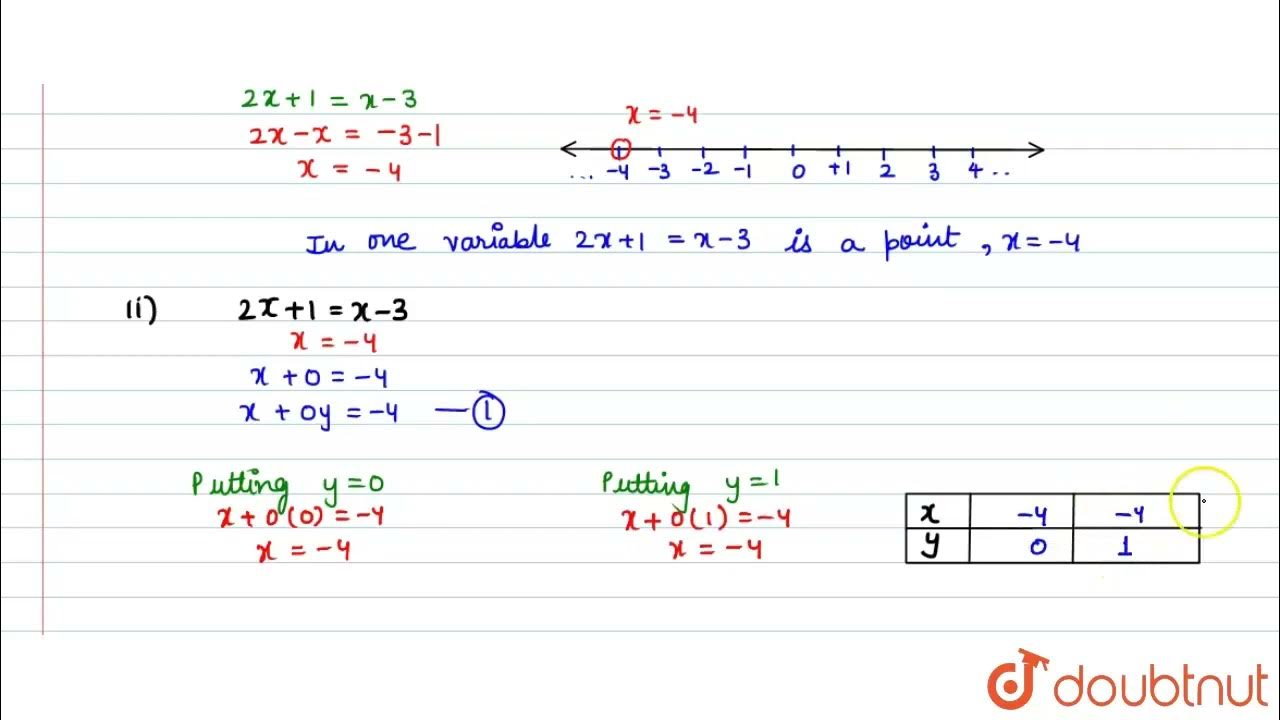 2x+1 = x-3
2x-x = -3-1
x = -4
x = -4
... -4 -3 -2 -1 0 +1 2 3 4 ..
In one variable 2x+1 = x-3 is a point, x=-4
ii) 2x+1 = x-3
x = -4
x + 0 = -4
x + 0y = -4 — ①
Putting y=0
x + 0(0) = -4
x = -4
Putting y=1
x + 0(1) = -4
x = -4
x -4 -4
y 0 1
doubtnut